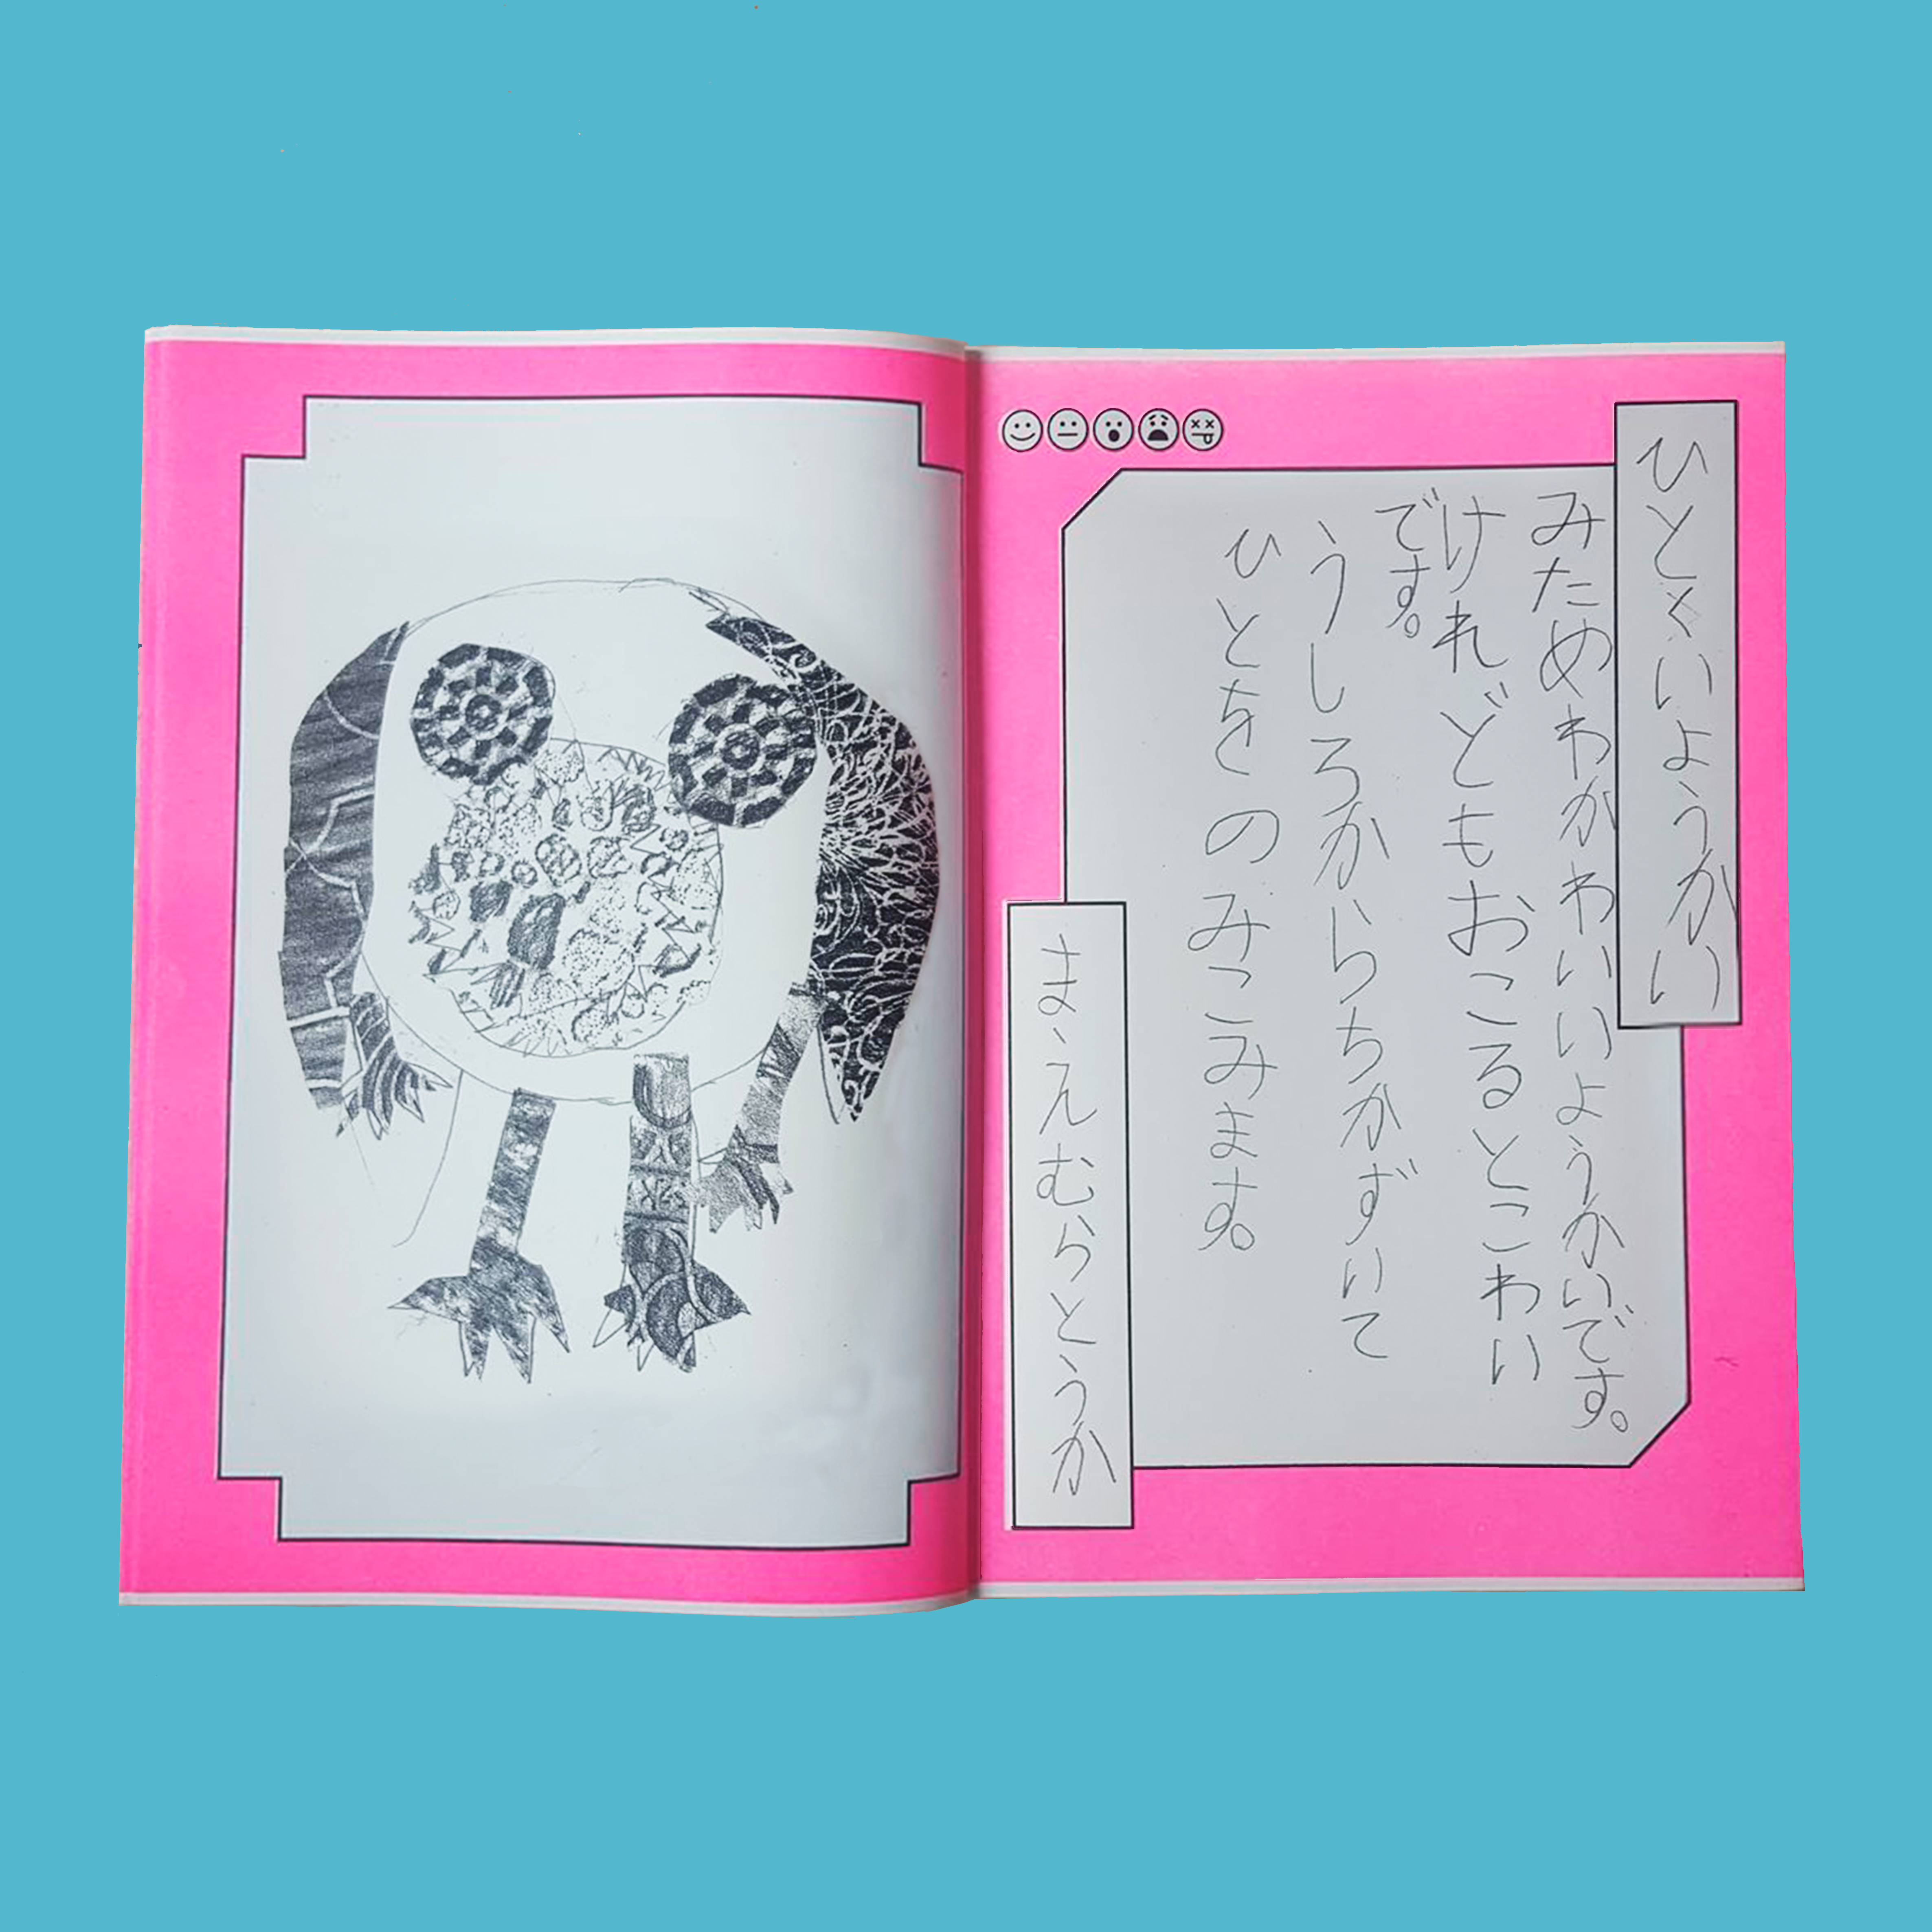 ひとくいようかい
みためわかわいいようかいです。
けれどもおこるとこわい
です。
うしろからちかずいて
ひとをのみこみます。
まえむらとうか